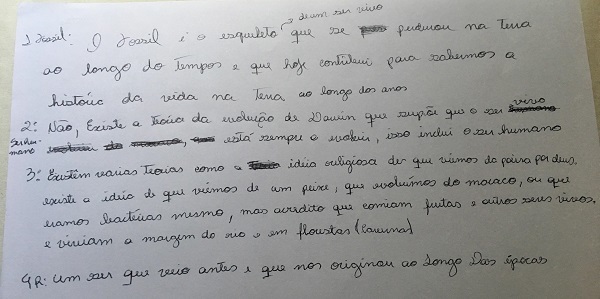 de um ser vivo
1 Fossil: O Fossil é o esqueleto que se perdurou na terra
ao longo do tempos e que hoje contribui para sabermos a
história da vida na Terra, ao longo dos anos
2: Não, Existe a Teoria da evolução de Darwin que supõe que o ser vivo
está sempre a evoluir, isso inclui o ser humano
3: Existem varias Teorias como a ideia religiosa der que viemos do por deus,
existe a ideia de que viemos de um peixe, que evoluimos do macaco, ou que
eramos bactérias mesmo, mas acredito que comiam frutas e outros seres vivos,
e viviam a margem do rio e em florestas (Caverna)
4R: Um ser que veio antes e que nos originou ao Longo Das épocas